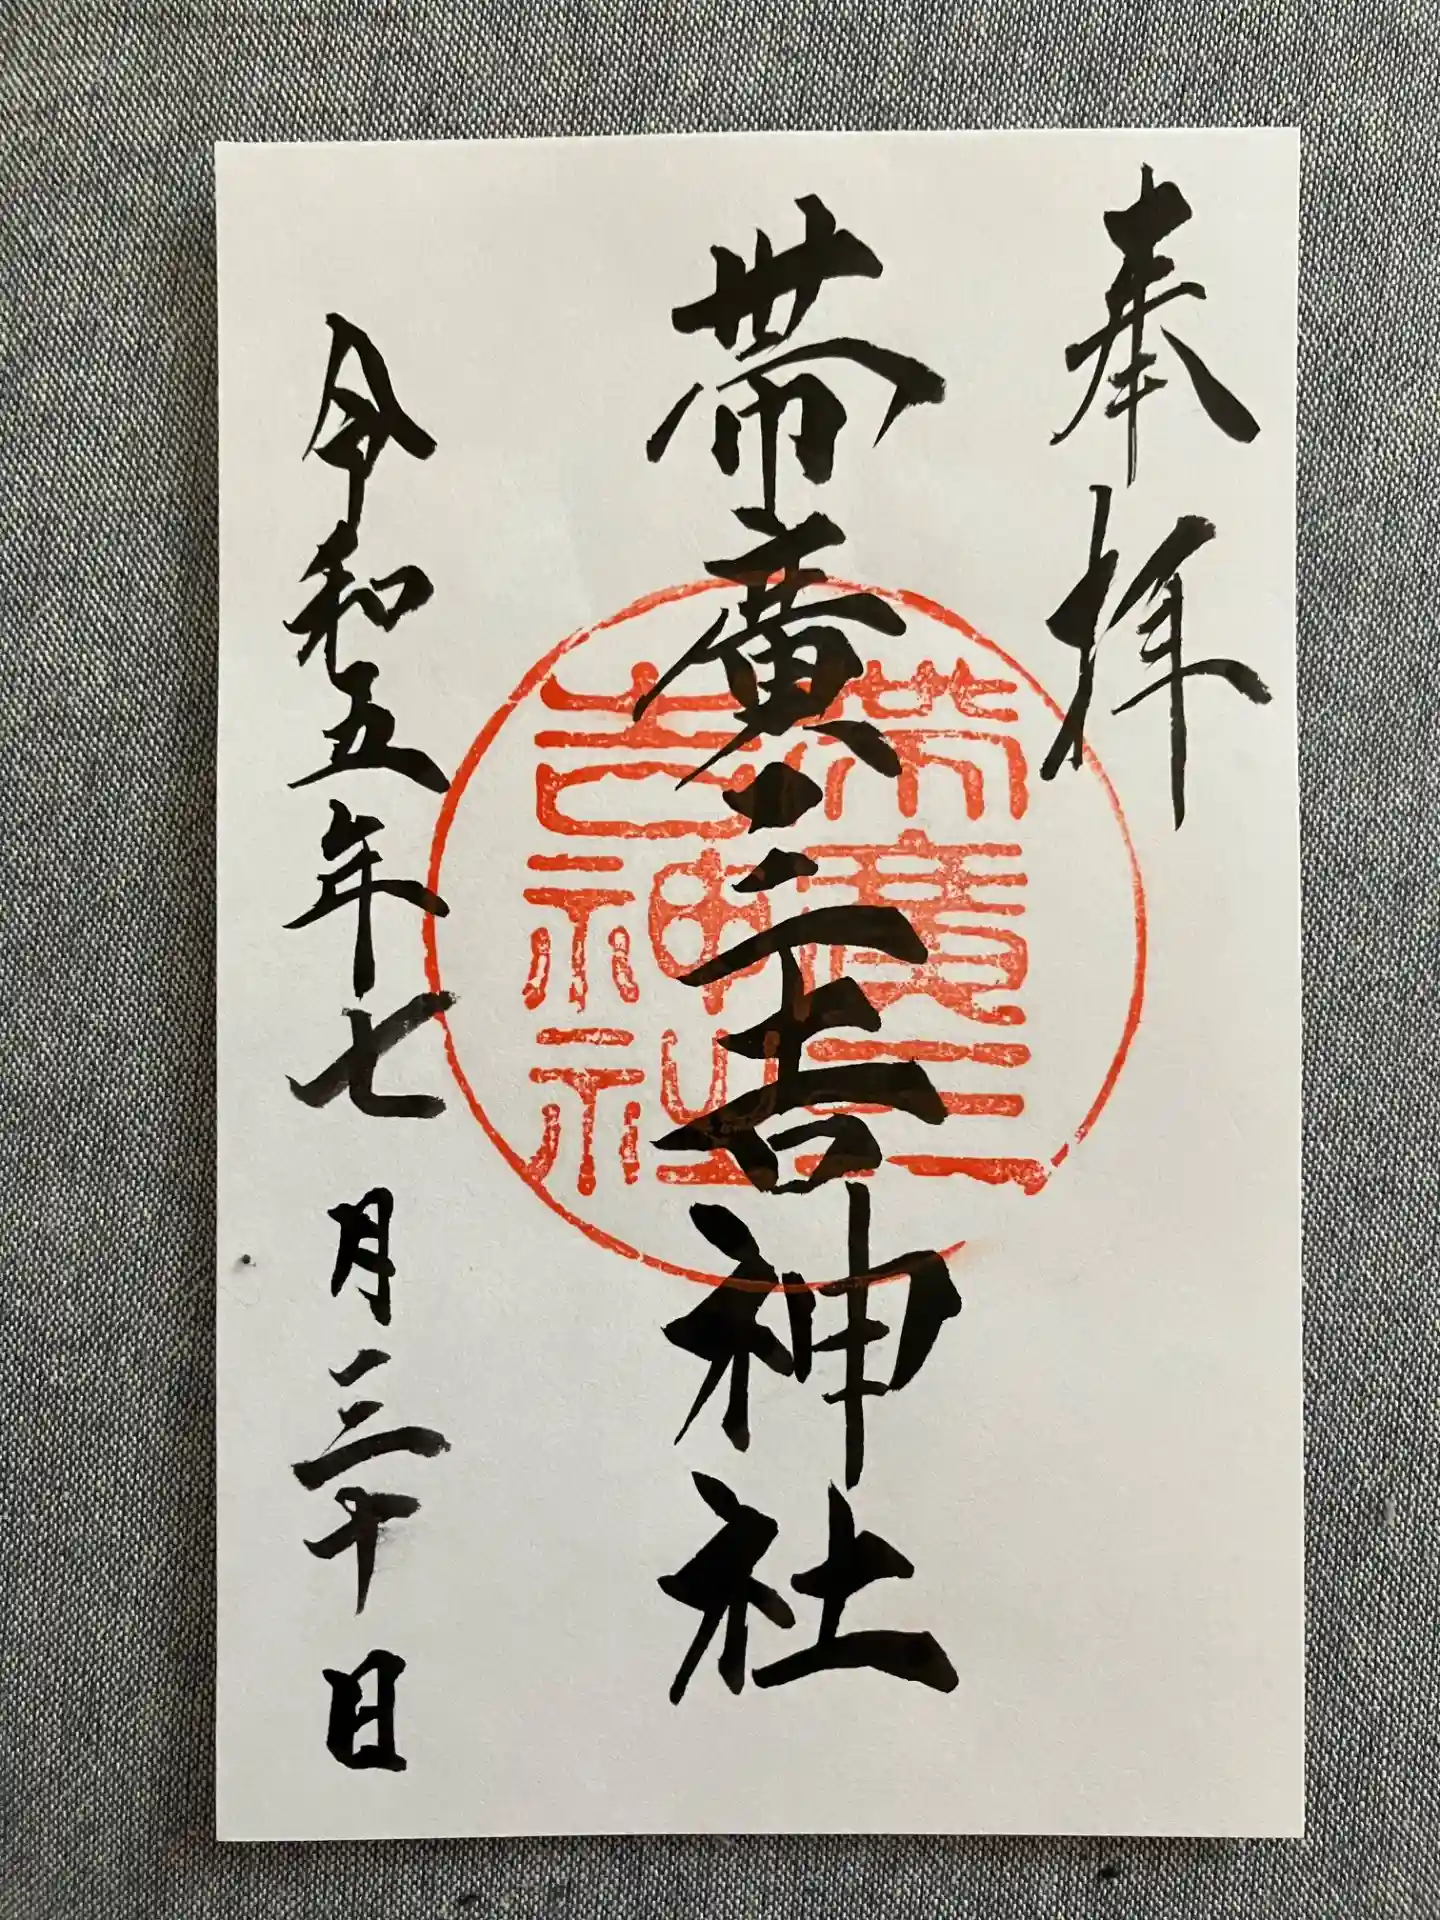 奉拝
帯廣三吉神社
帯廣三吉神社
令和五年七月三十日